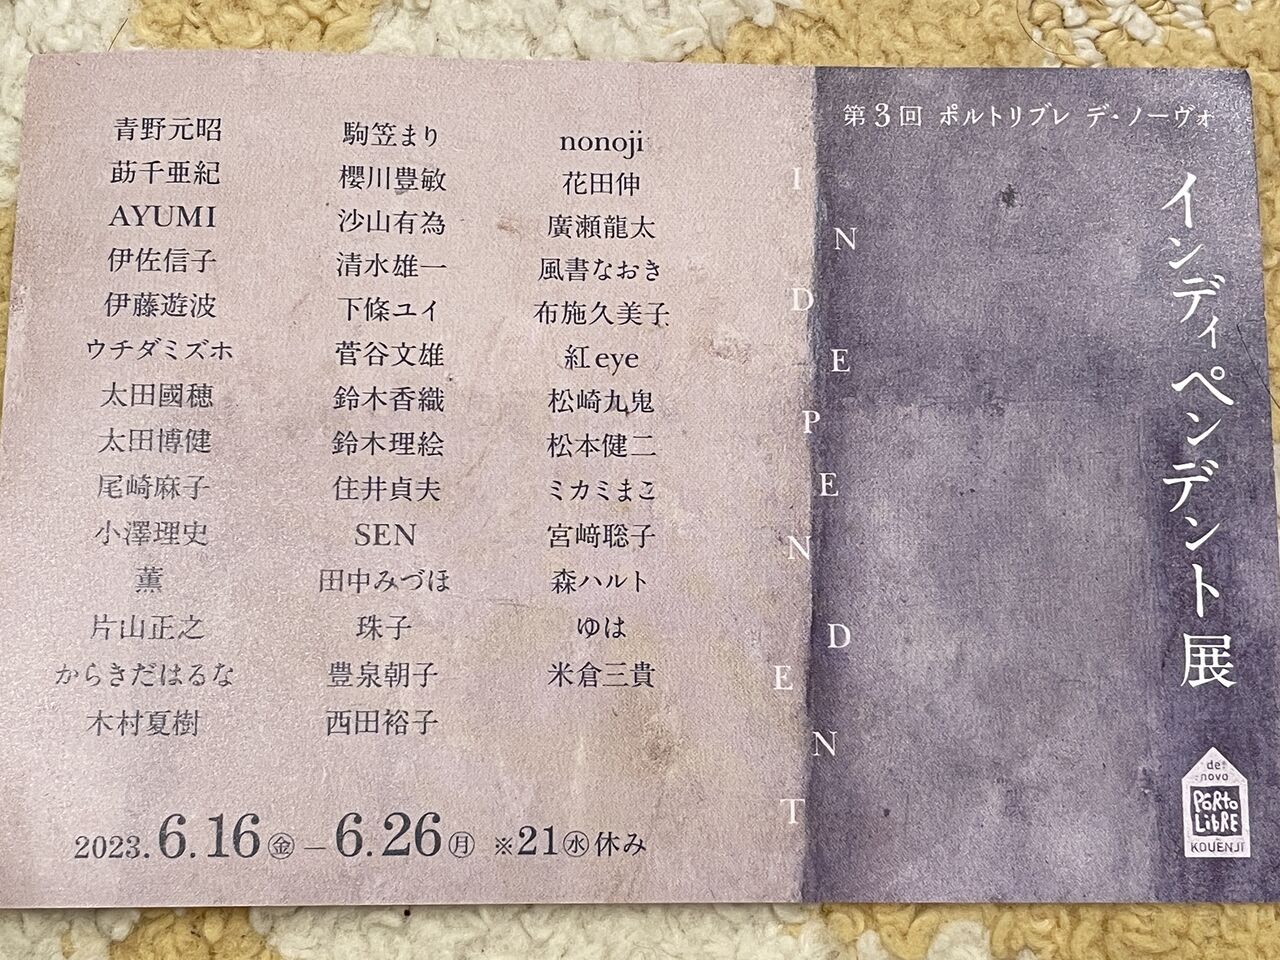 第3回 ポルトリブレ デ・ノーヴォ
インディペンデント展
INDEPENDENT
青野元昭
莇千亜紀
AYUMI
伊佐信子
伊藤遊波
ウチダミズホ
太田國穂
太田博健
尾崎麻子
小澤理史
薫
片山正之
からきだはるな
木村夏樹
駒笠まり
櫻川豊敏
沙山有為
清水雄一
下條ユイ
菅谷文雄
鈴木香織
鈴木理絵
住井貞夫
SEN
田中みづほ
珠子
豊泉朝子
西田裕子
nonoji
花田伸
廣瀬龍太
風書なおき
布施久美子
紅eye
松崎九鬼
松本健二
ミカミまこ
宮﨑聡子
森ハルト
ゆは
米倉三貴
2023. 6.16㊎ – 6.26㊊ ※21㊌休み
de novo
PORTO
LIBRE
KOUENJI